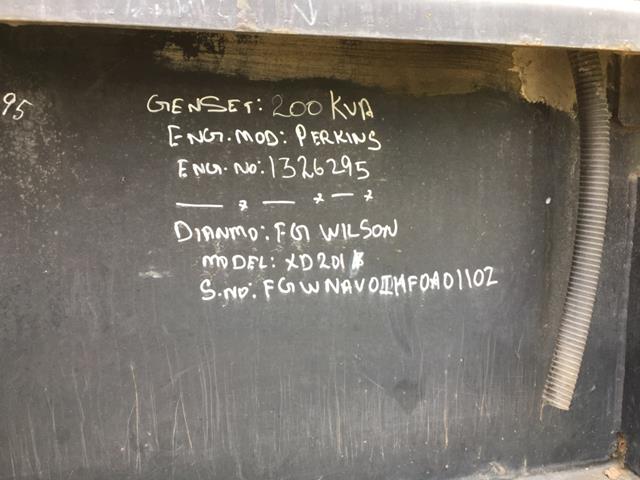 95
GENSET: 200 KVA
ENG.MOD: PERKINS
ENG.NO: 1326295
— * — * — *
DIANMO: FG WILSON
MODEL: XD201
S.NO: FGWNAV01HF0A01102